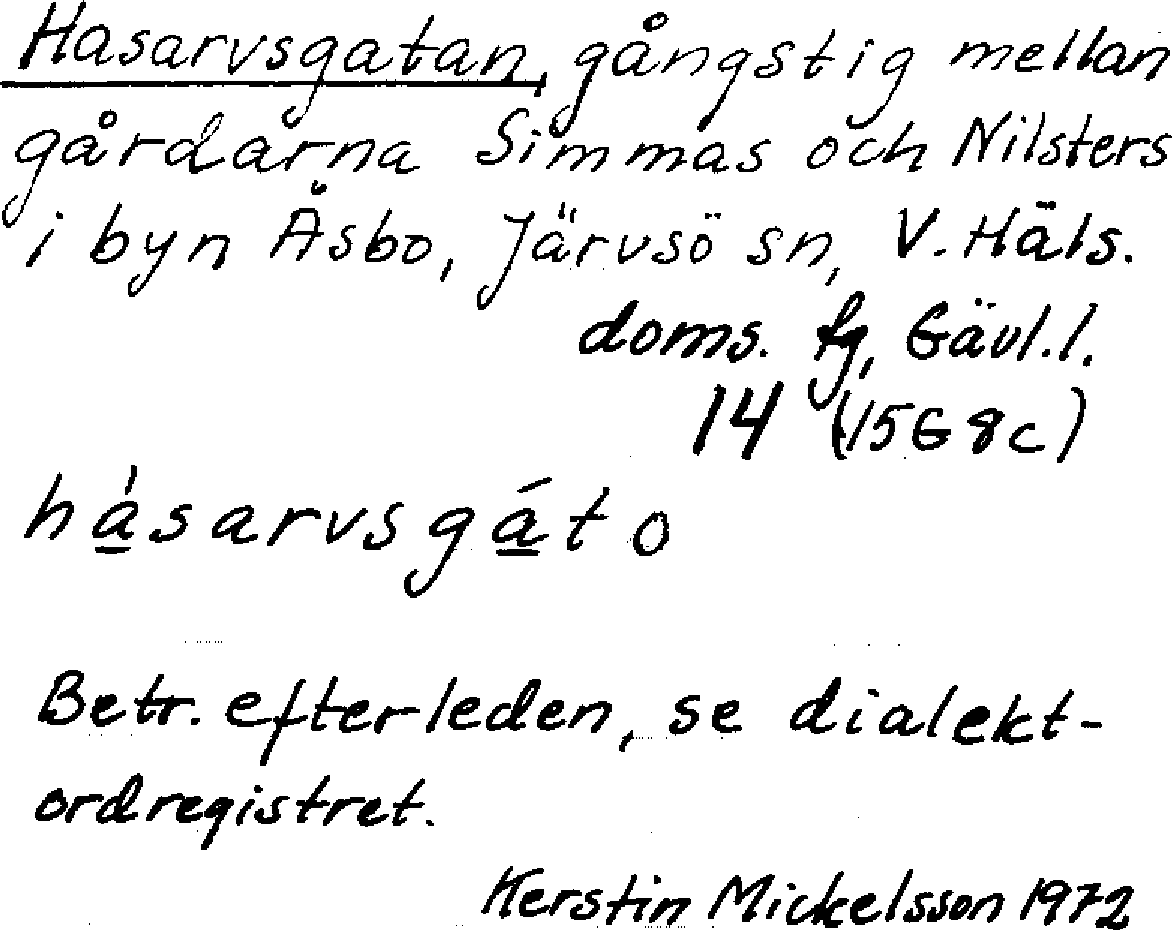 Hasarvsgatan, gångstig mellan
gårdarna Simmas och Nilsters
i byn Åsbo, Järvsö sn, V. Häls.
doms. fg, Gävl. l.
14 (15G 8c)
hà̱sarvsgá̱to
Betr. efterleden, se dialekt-
ordregistret.
Kerstin Mickelsson 1972